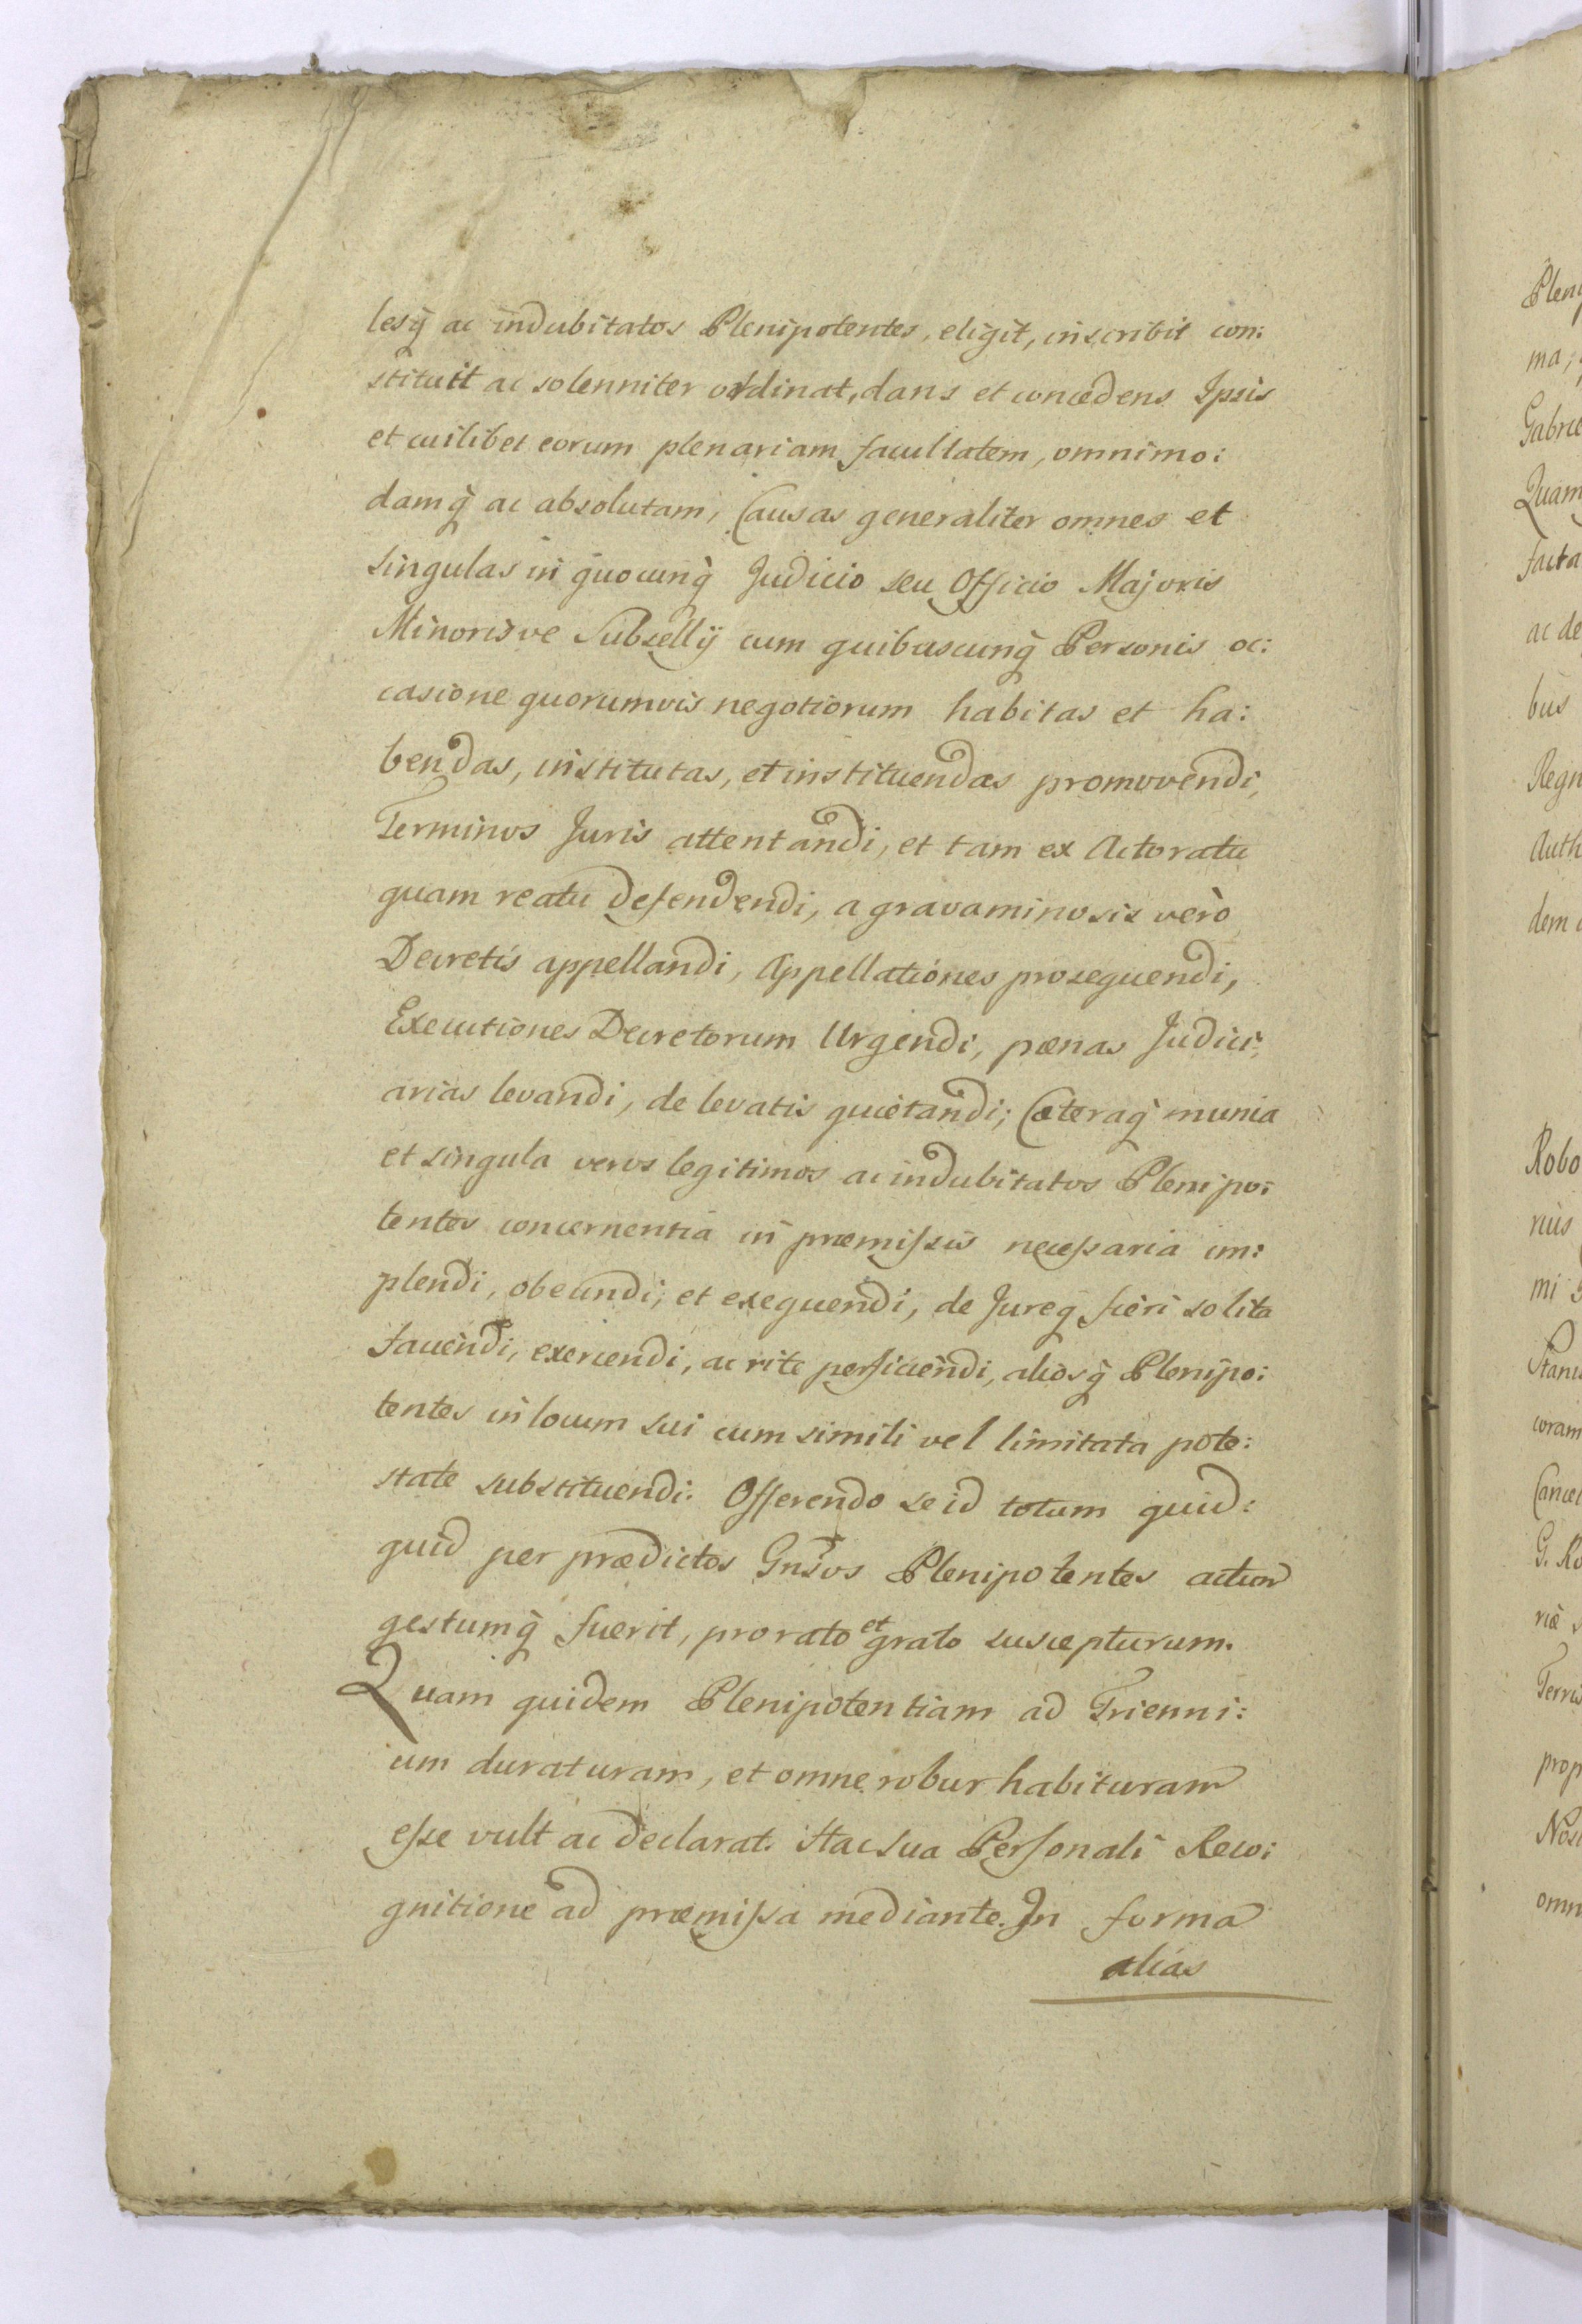 lesq̀ ac indubitatos Plenipotentes, eligit, inscribit con:
stituit ac solenniter ordinat, dans et concedens Ipsis
et cuilibet eorum plenariam facultatem, omnimo:
damq̀ ac absolutam, Causas generaliter omnes et
singulas in quocunq̀ Judicio seu Officio Majoris
Minorisve Subsellij cum quibuscunq̀ Personis oc:
casione quorumvis negotiorum habitas et ha:
bendas, institutas, et instituendas promovendi,
Terminos Juris attentandi, et tam ex Actoratu
quam reatu defendendi, a gravaminosis verò
Decretis appellandi, Appellationes prosequendi,
Executiones Decretorum Urgendi, pœnas Judici:
arias levandi, de levatis quietandi; Cæteraq̀ munia
et singula veros legitimos ac indubitatos Plenipo:
tentes concernentia in præmissis necessaria im:
plendi, obeundi, et exequendi, de Jureq̀ fieri solita
faciendi, exercendi, ac rite perficiendi, aliosq̀ Plenipo:
tentes in locum sui cum simili vel limitata pote:
state substituendi. Offerendo se id totum quid:
quid per prædictos Gnsos Plenipotentes actum
gestumq̀ fuerit, pro rato et grato suscepturum.
Quam quidem Plenipotentiam ad Trienni:
um duraturam, et omne robur habituram
esse vult ac declarat. Hac sua Personali Reco:
gnitione ad præmissa mediante. In forma
alias
Pleni
ma,
Gabrie
Quam
facta
ac de
bus
Regn
Auth
dem
Robo
rius
mi
Stanis
coram
Cancel
G. Ro
riæ
Terris
prop
Nos
omn